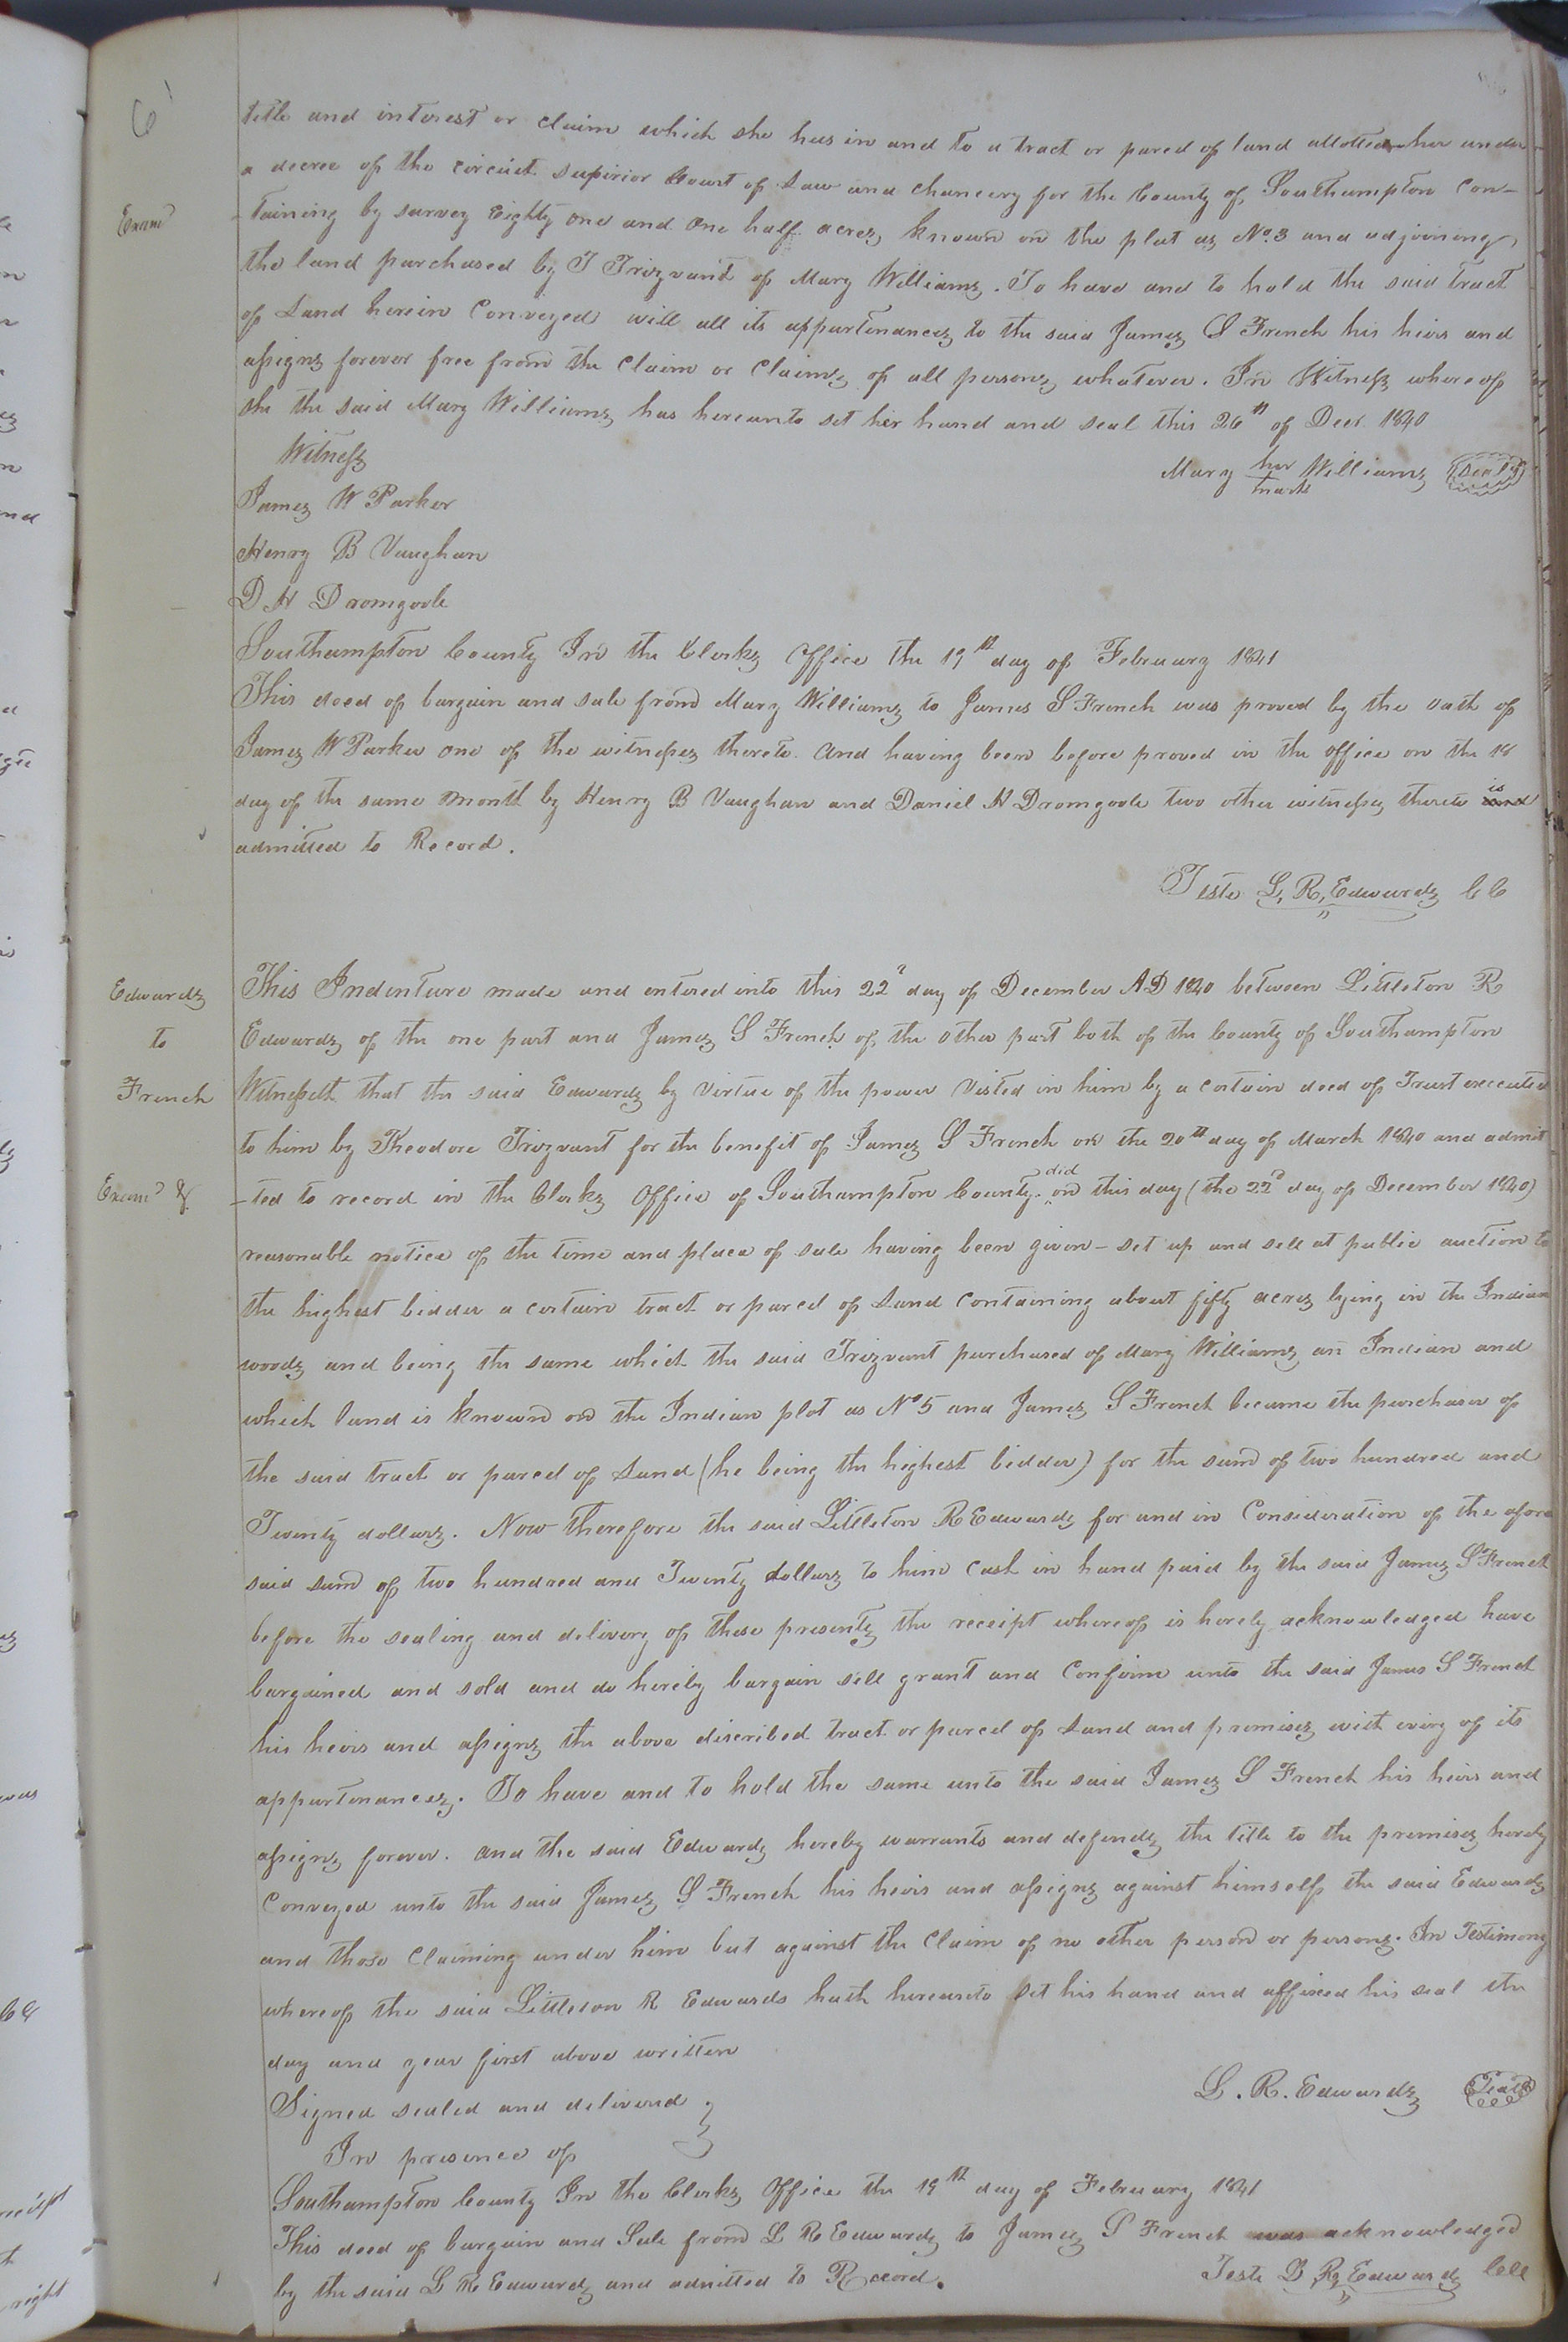 6
title and interest or claim which she has in and to a tract or parcel of land allotted her under
a decree of the circuit superior Court of Law and chancery for the County of Southampton con-
Examd
taining by survey Eighty one and One half acres known on the plat as No. 3 and adjoining
the land purchased by T Trezvant of Mary Williams. To have and to hold the said tract
of Land herein Conveyed will all its appurtenances to the said James S French his heirs and
assigns forever free from the Claim or Claims of all persons whatever. In Witness whereof
she the said Mary Williams has hereunto set her hand and seal this 26th of Decr. 1840
Witness
Mary her Williams (Seal)
mark
James W Parker
Henry B Vaughan
D H Dromgoole
Southampton County In the Clerks Office the 19th day of February 1841
This deed of bargain and sale from Mary Williams to James S French was proved by the oath of
James W Parker one of the witnesses thereto. And having been before proved in the office on the 18
day of the same month by Henry B Vaughan and Daniel H Dromgoole two other witnesses thereto is
admitted to Record.
Teste L, R, Edwards CC
Edwards
to
French
This Indenture made and entered into this 22d day of December AD 1840 between Littleton R
Edwards of the one part and James S French of the other part both of the County of Southampton
Witnesseth that the said Edwards by virtue of the power Visted in him by a certain deed of Trust executed
to him by Theodore Trezvant for the benefit of James S French on the 20th day of March 1840 and admit
Examd &
-ted to record in the Clerks Office of Southampton County did on this day (the 22d day of December 1840)
reasonable notice of the time and place of sale having been given - set up and sell at public auction to
the highest bidder a certain tract or parcel of Land Containing about fifty acres lying in the Indian
woods and being the same which the said Trezvant purchased of Mary Williams an Indian and
which land is Known on the Indian plot as No 5 and James S French became the purchaser of
the said tract or parcel of Land (he being the highest bidder) for the sum of two hundred and
Twenty dollars. Now Therefore the said Littleton R Edwards for and in Consideration of the afore
said sum of two hundred and Twenty dollars to him Cash in hand paid by the said James S French
before the sealing and delivery of these presents the receipt whereof is hereby acknowledged have
bargained and sold and do hereby bargain sell grant and Confirm unto the said James S French
his heirs and assigns the above discribed tract or parcel of Land and premises with every of its
appurtenances. To have and to hold the same unto the said James S French his heirs and
assigns forever. And the said Edwards hereby warrants and defends the title to the premises hereby
Conveyed unto the said James S French his heirs and assigns against himself the said Edwards
and those Claiming under him but against the Claim of no other person or persons. In Testimony
whereof the said Littleton R Edwards hath hereunto Set his hand and affixed his seal the
day and year first above written
L. R. Edwards (Seal)
Signed sealed and delivered }
In presence of
Southampton County In the Clerks Office the 19th day of February 1841
This deed of bargain and Sale from L R Edwards to James S French was acknowledged
by the said L R Edwards and admitted to Record.
Teste L R, Edwards